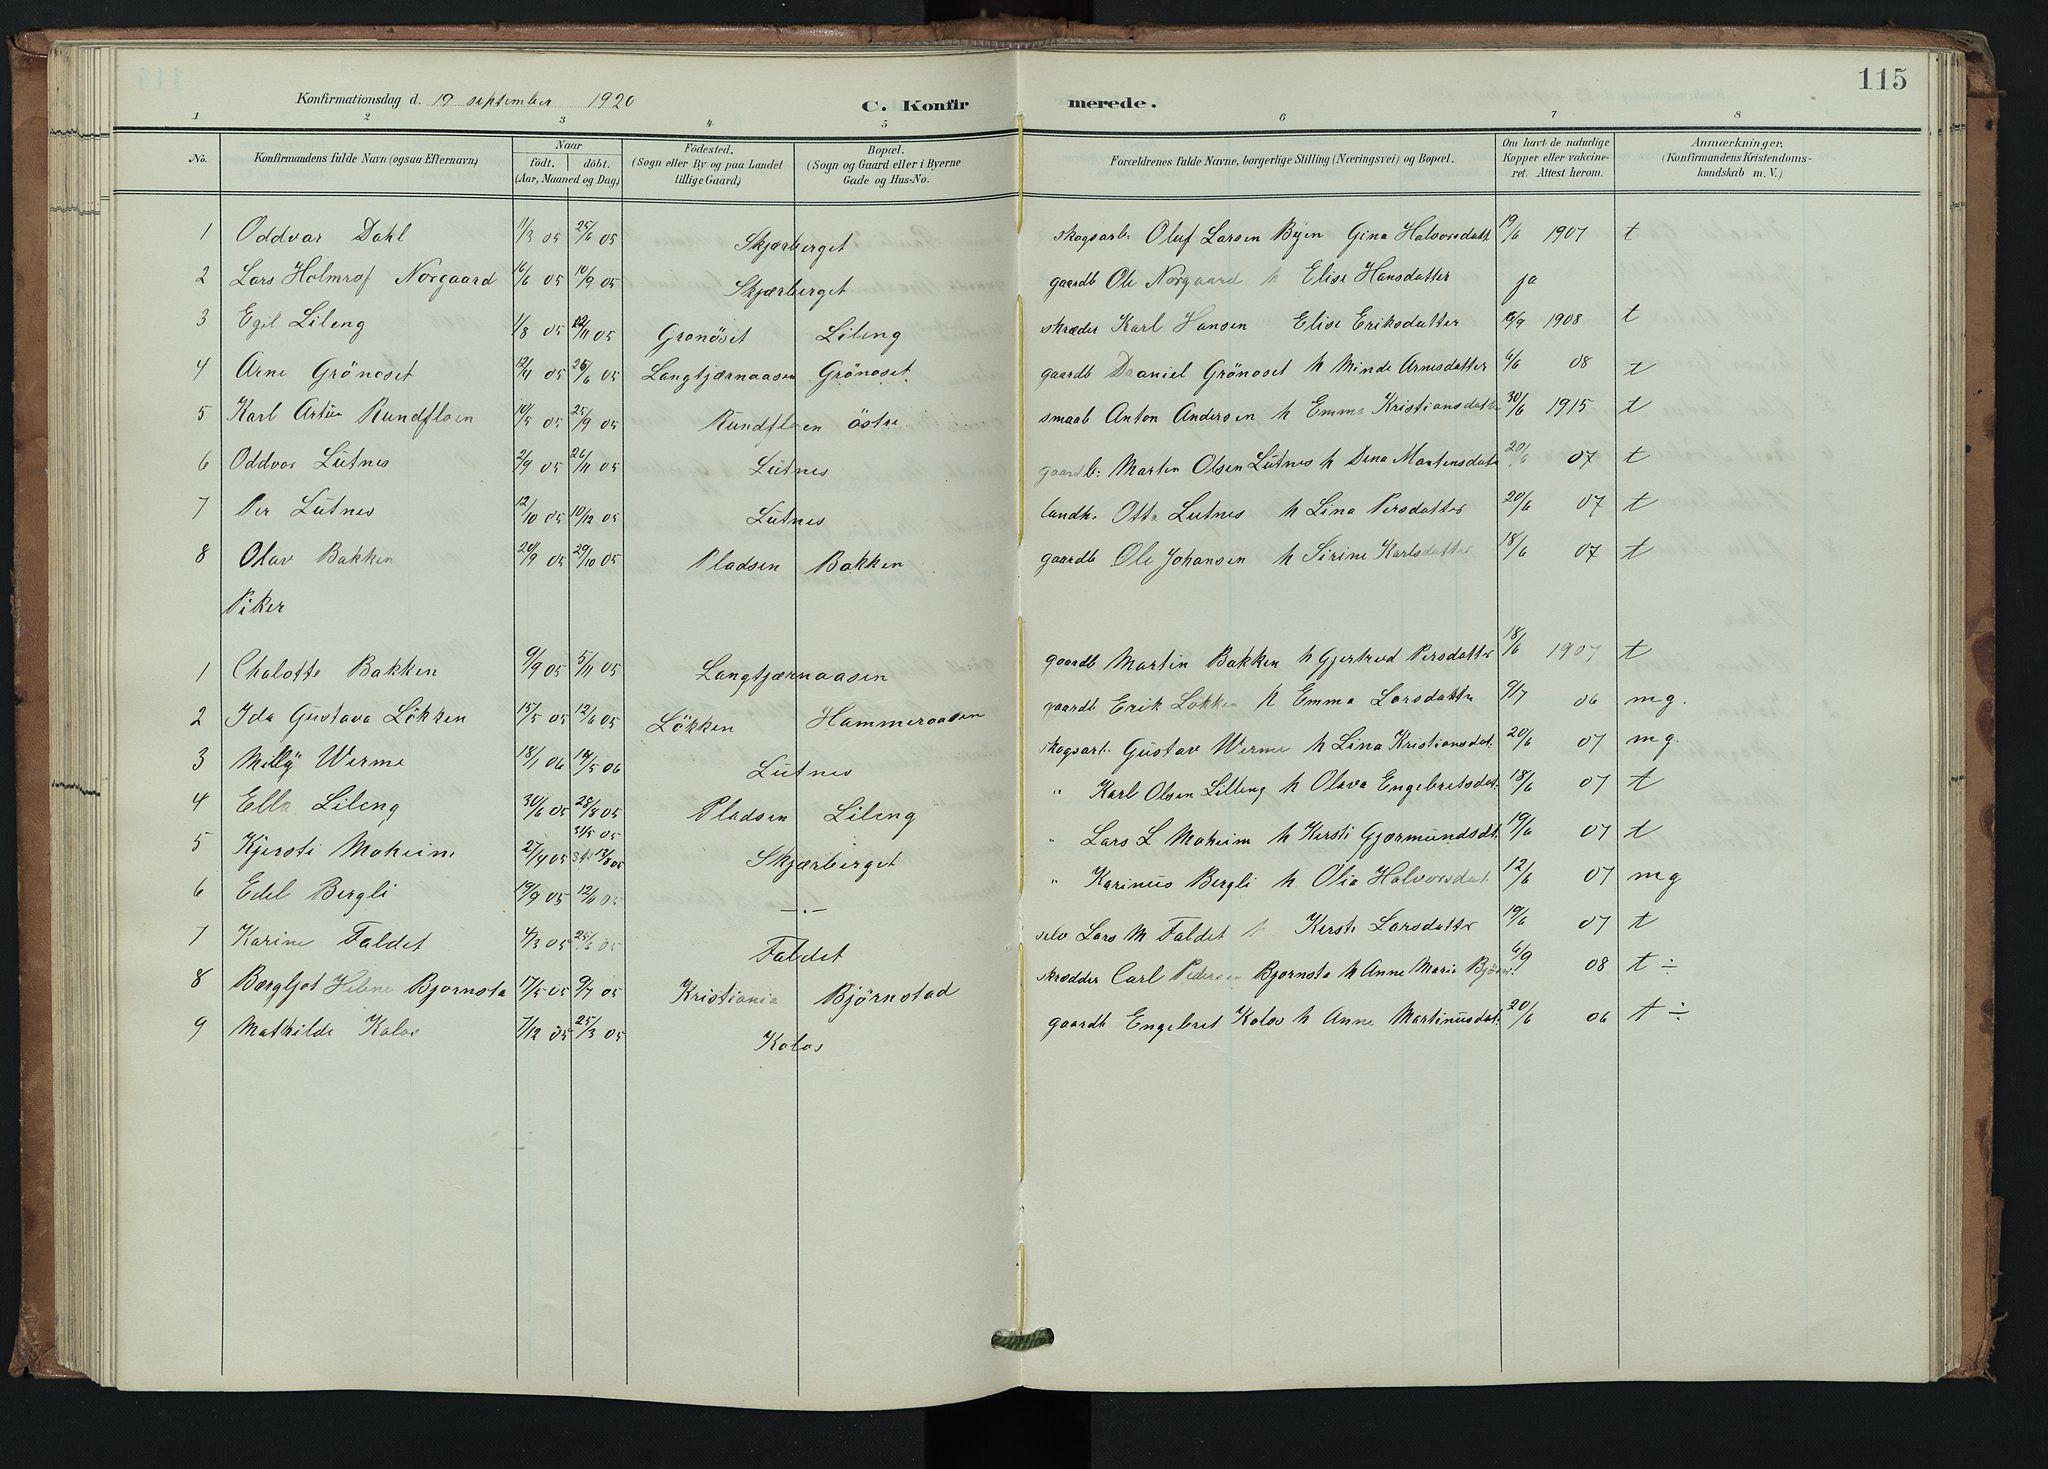 115
Konfirmationsdag d. 19 september 1920 C. Konfirmerede.
1 2 3 4 5 6 7 8
No. Konfirmandens fulde Navn (ogsaa Efternavn) Naar födt. döbt. (Aar, Maaned og Dag) Födested. (Sogn eller By og paa Landet tillige Gaard) Bopæl. (Sogn og Gaard eller i Byerne Gade og Hus-No. Forældrenes fulde Navne, borgerlige Stilling (Næringsvei) og Bopæl. Om havt de naturlige Kopper eller vakcineret. Attest herom. Anmærkninger, (Konfirmandens Kristendomskundskab m. V.)
1 Oddvar Dahl 11/3 05 25/6 05 Skjærberget skogsarb: Oluf Larsen Byen Gina Halvorsdatt 19/6 1907 t
2 Lars Holmrof Norgaard 16/6 05 10/9 05 Skjærberget gaardb Ole Norgaard h Elise Hansdatter ja
3 Egil Lileng 1/8 05 12/11 05 Gronöset Lileng skræder Karl Hansen Elise Eriksdatter 6/9 1908 t
4 Arne Grönoset 12/4 05 25/6 05 Langtjærnaasen Grönoset. gaardb Daaniel Grönoset h Minda Arnesdatter 6/6 08 t
5 Karl Artur Rundfloen 10/5 05 25/9 05 Rundfloen östre smaab Anton Andersen h Emma Kristiansdatte 30/6 1915 t
6 Oddvar Lutnes 2/9 05 26/11 05 Lutnes gaardb: Martin Olsen Lutnes h Dena Martensdatt 20/6 07 t
7 Per Lutnes 12/10 05 10/12 05 Lutnes landh. Otto Lutnes h Lina Persdatter 20/6 07 t
8 Olav Bakken 20/9 05 29/10 05 Pladsen Bakken gaardb Ole Johansen h Sirine Karlsdatter 18/6 07 t
Piker
1 Chalotte Bakken 9/9 05 5/11 05 Langtjærnaasen gaardb Martin Bakken h Gjertrud Persdatter 18/6 1907 t
2 Ida Gustava Lökken 15/5 05 12/6 05 Lökken Hammeraasen gaardb Erik Lokken h Emma Larsdatte 9/7 06 mg.
3 Melly Werme 18/1 06 14/5 06 Lutnes skogsarb. Gustav Werme h Lina Kristiansdat. 20/6 07 mg.
4 Ella Lileng 30/6 05 28/8 05 Pladsen Lileng " Karl Olsen Lilleng h Olava Engebretsdat. 18/6 07 t
5 Kjersti Moheim 27/4 05 31/5 05 st 13/8 05 Skjærberget " Lars L Moheim h Kersti Gjærmundsdt. 19/6 07 t
6 Edel Bergli 19/9 05 12/11 05 —.— " Karinus Bergli h Olia Halvorsdat. 12/6 07 mg
7 Karine Faldet 4/3 05 25/6 05 Faldet selv Lars M Faldet h Kersti Larsdatter 19/6 07 t
8 Bærgljot Helene Bjornsta 17/5 05 9/7 05 Kristiania Björnstad skrædder Carl Pedersen Bjornsta h Anne Marie Björn. 6/9 08 t ÷
9 Mathilde Kolos 7/12 05 25/3 05 Kolos gaardb Engebret Kolos h Anne Martinusdat. 20/6 06 t ÷